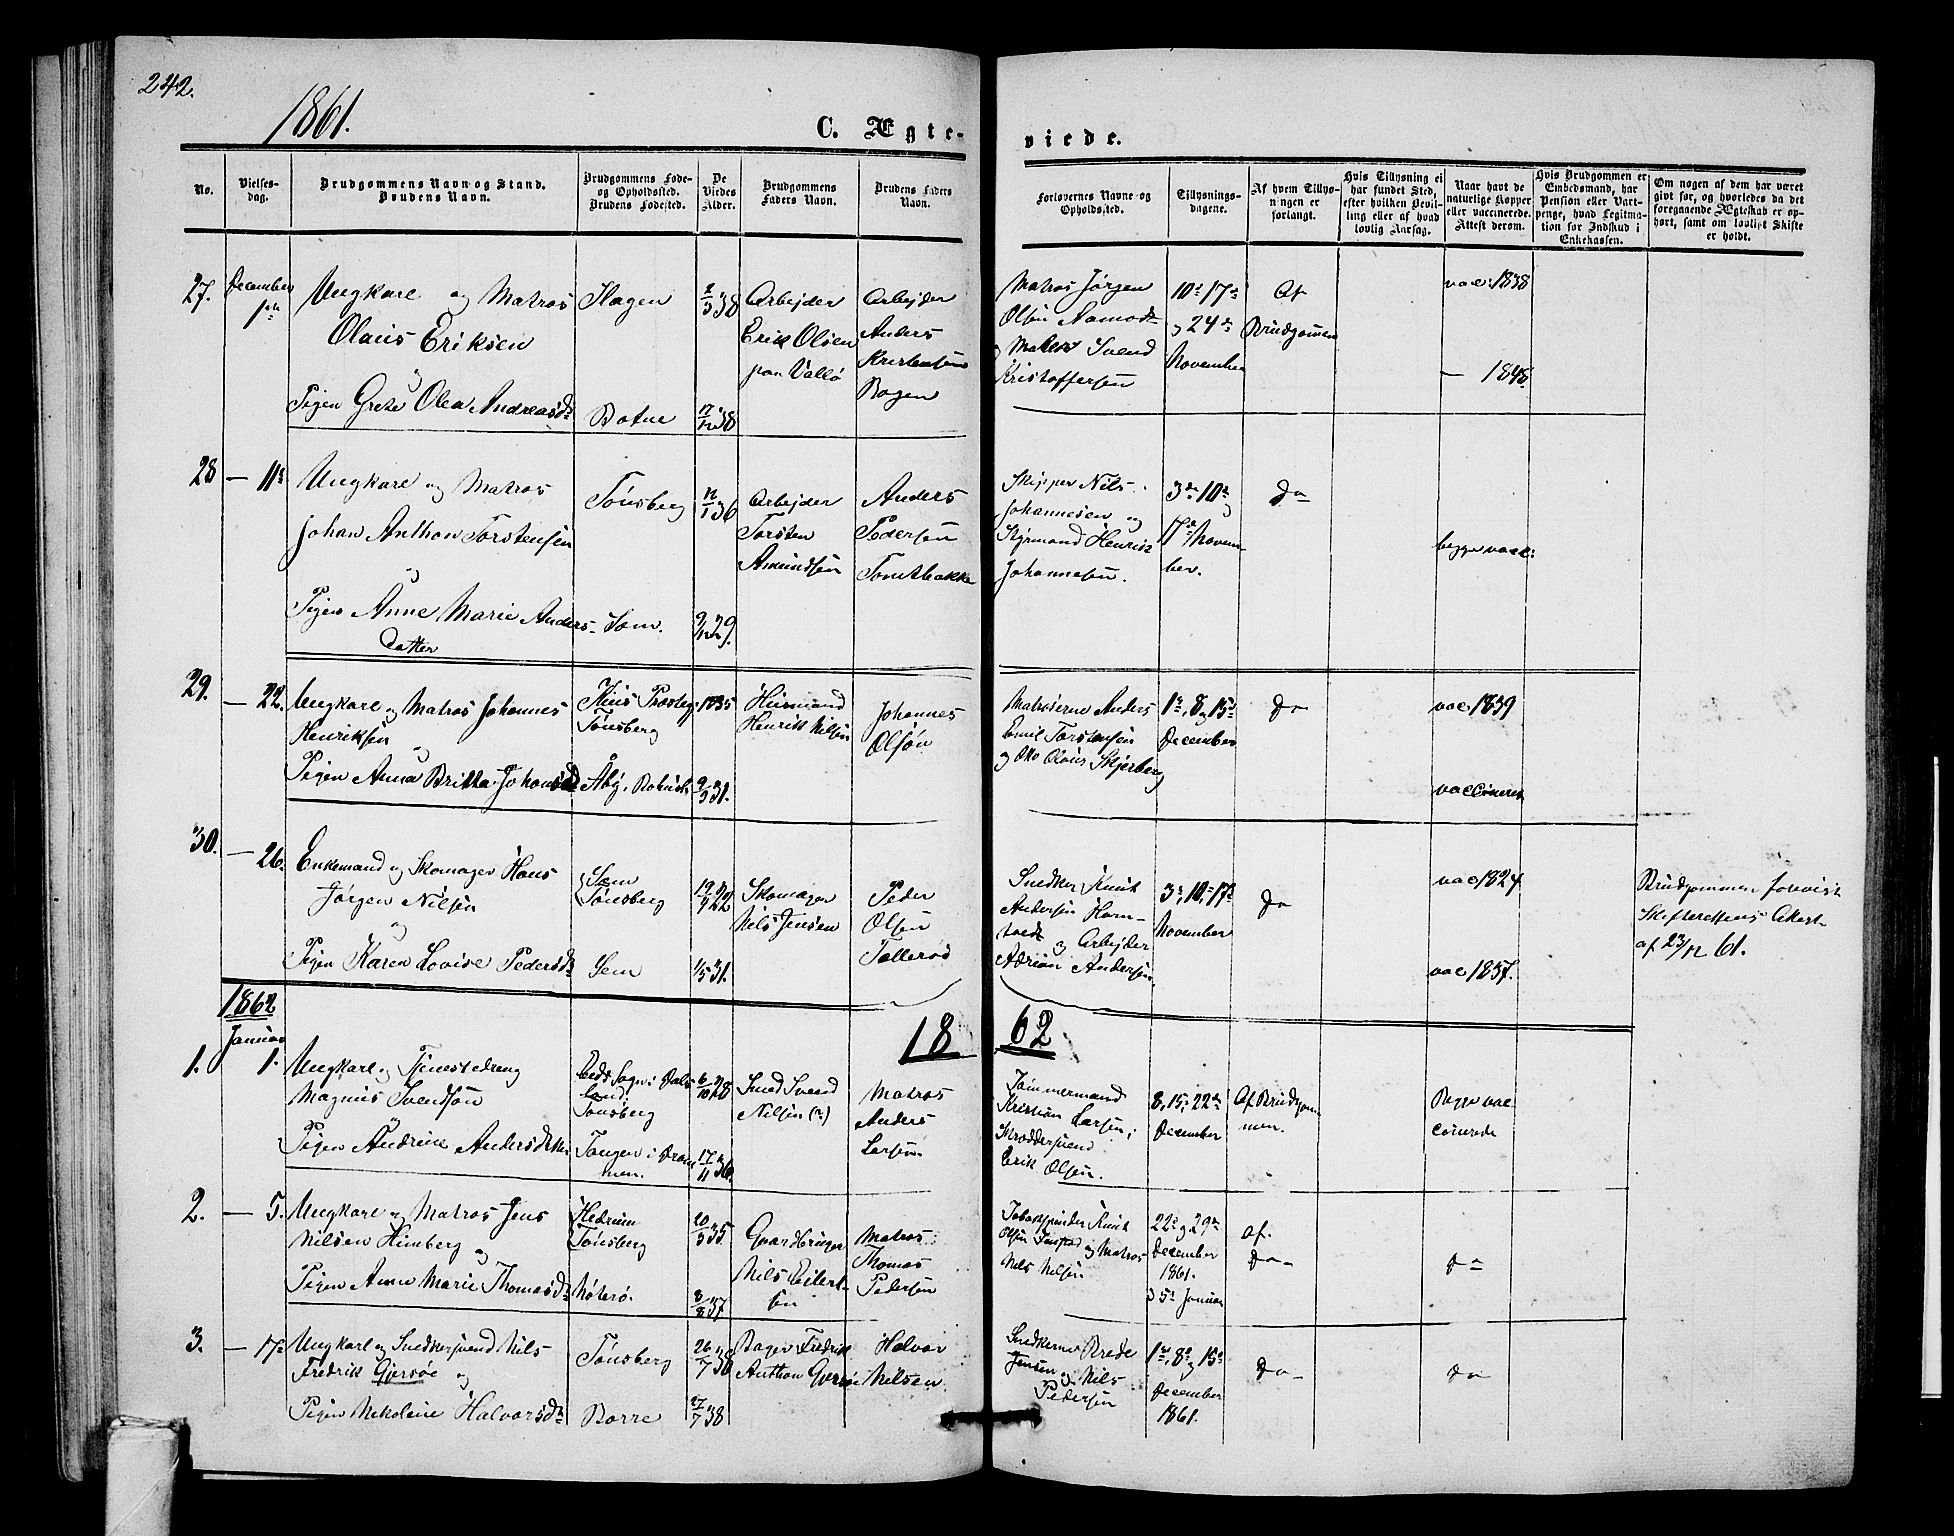 242.
1861.
C. Ægte-
viede.
No.
Vielses-
dag.
Brudgommens Navn og Stand.
Brudens Navn.
Brudgommens Føde-
og Opholdssted.
Brudens Fødested.
De
Viedes
Alder.
Brudgommens
Faders Navn.
Brudens Faders
Navn.
Forlovernes Navne og
Opholdssted.
Tillysnings-
dagene.
Af hvem Tillys-
ningen er
forlangt.
Hvis Tillysning ei
har fundet Sted,
efter hvilken Bevil-
ling eller af hvad
lovlig Aarsag.
Naar havt de
naturlige Kopper
eller vaccinerede.
Attest derom.
Hvis Brudgommen er
Embedsmand, har
Pension eller Vart-
penge, hvad Legitima-
tion for Indskud i
Enkekassen.
Om nogen af dem har været
gift før, og hvorledes da det
foregaaende Ægteskab er op-
hørt, samt om lovligt Skifte
er holdt.
27.
December
1ste
Ungkarl og Matros
Olaus Eriksen
og
Pigen Grete Olea Andreasd
Hagen
Botne
2/3 38
17/12 38
Arbejder
Erik Olsen
paa Vallø
Arbejder
Anders
Kristensen
Bogen
Matros Jørgen
Olsen Aamodt
og Matros Svend
Kristoffersen
10de 17de
og 24de
November
Af
Brudgommen
vac: 1838
— 1848.
28
— 11te
Ungkarl og Matros
Johan Anthon Torstensen
og
Pigen Anne Marie Anders-
datter
Tønsberg
Sem.
12/1 36
9/12 29.
Arbejder
Torsten
Amundsen
Anders
Pedersen
Tomtbakke
Skipper Nils
Johannesen og
Styrmand Henrik
Johannesen.
3de 10de og
17de Novem-
ber.
do
begge vacc:
29.
— 22.
Ungkarl og Matros Johannes
Henriksen
og
Pigen Anna Britta Johansd
Tønsberg
1835
9/3 31.
Husmand
Henrik Nilsen
Johannes
Olsøn
Matroserne Anders
Emil Torstensen
og Otto Olaus Skjerberg
1ste, 8 og 15de
December
do
vac: 1839
vaccineret
30.
— 26.
Enkemand og Skomager Hans
Jørgen Nilsen
og
Pigen Karen Lovise Pedersd
Sem
Tønsberg
Sem
19/9 22
1/5 31.
Skomager
Nils Jensen
Peder
Olsen
Tallerød
Snedker Knut
Andersen Horn-
tvedt og Arbejder
Adrian Andersen
3de, 10de, 17de
November
do
vac 1824.
vac 1837.
Brudgommen forevist
Skifterettens Attest
af 23/12 61.
1862
Januar
18
62
1.
1.
Ungkarl og Tjenestedreng
Magnus Svendsøn
og
Pigen Andrine Andersdtter
Eds Sogn i Dals
land.
Tønsberg
Tangen i Dram
men.
6/10 28
17/11 36.
Smed Svend
Nilsen (?)
Matros
Anders
Larsen
Tømmermand
Kristian Larsen,
Skræddersvend
Erik Olsen.
8, 15, 22de
December
Af Brudgom-
men.
Begge vac
cinerede
2.
— 5.
Ungkarl og Matros Jens
Nilsen Himberg
og
Pigen Anne Marie Thomasd
Hedrum
Tønsberg
Nøterø.
20/3 35
8/8 37
Gaardbruger
Nils Eilert-
sen
Matros
Thomas
Pedersen
Tobakspinder Knut
Olsen og Matros
Nils Nilsen
22de og 29de
December
1861.
5te Januar
af.
do
do
3.
— 17de
Ungkarl og Snedkersvend Nils
Fredrik Gjersøe og
Pigen Nikoline Halvorsd
Tønsberg
Borre
26/7 38
27/7 38
Bager Fredrik
Anthon Gjersøe
Halvor
Nilsen
Snedkerne Brede
Jensen og Nils
Pedersen
1ste, 8de og 15de
December
1861.
do
do